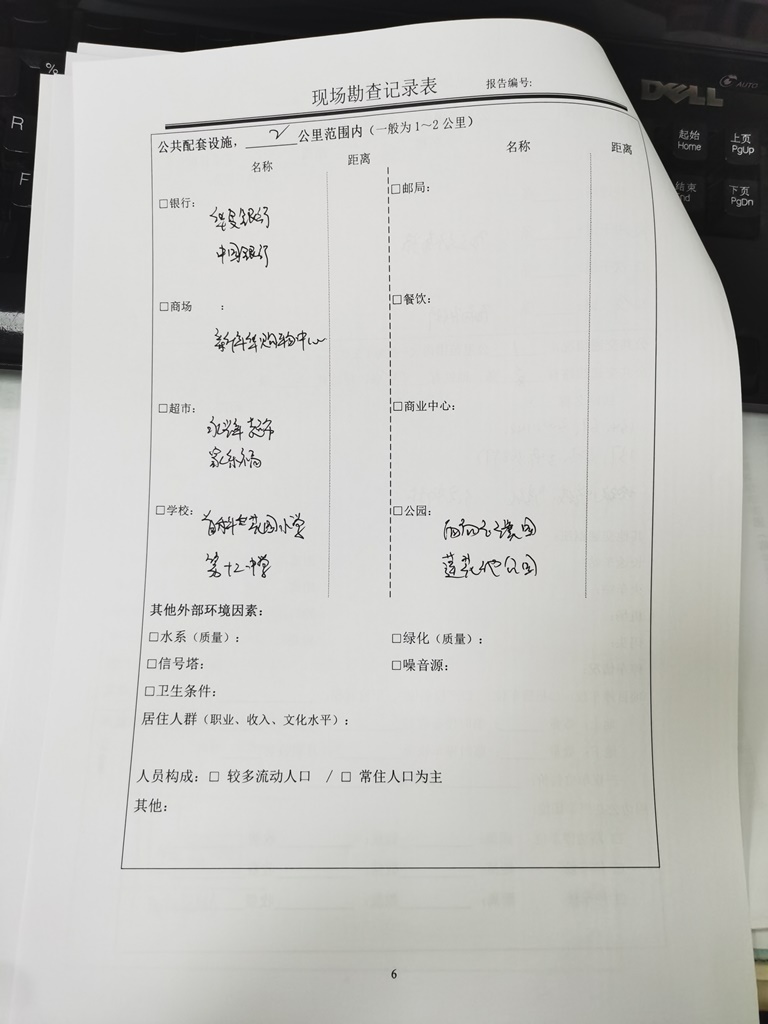 现场勘查记录表
报告编号:
公共配套设施，2公里范围内（一般为1～2公里）
名称 距离 名称 距离
□银行: □邮局:
华夏银行
中国银行
□商场 : □餐饮:
购物中心
□超市: □商业中心:
超市
家乐福
□学校: □公园:
花园小学
第十二中学
莲花池公园
其他外部环境因素:
□水系（质量）: □绿化（质量）:
□信号塔: □噪音源:
□卫生条件:
居住人群（职业、收入、文化水平）:
人员构成: □ 较多流动人口 / □ 常住人口为主
其他:
6
DELL
AUTO
%
R
F
起始
Home
上页
PgUp
结束
nd
下页
PgDn